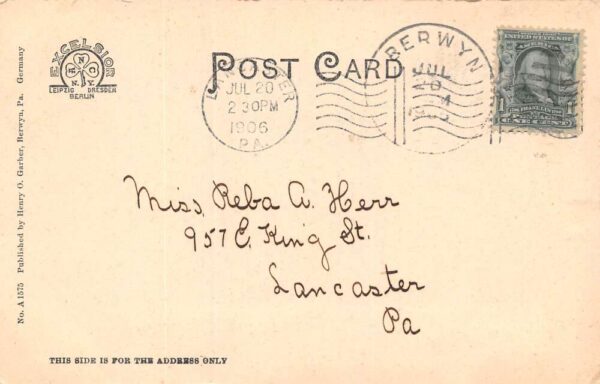 EXCELSIOR
R N C
N.Y.
LEIPZIG DRESDEN
BERLIN
POST CARD
LANCASTER
JUL 20
2 30PM
1906
PA.
BERWYN
JUL
20
UNITED STATES OF
1
ONE CENT
Miss Reba A. Herr
957 E. King St.
Lancaster
Pa
No. A 1575 Published by Henry O. Garber, Berwyn, Pa. Germany
THIS SIDE IS FOR THE ADDRESS ONLY